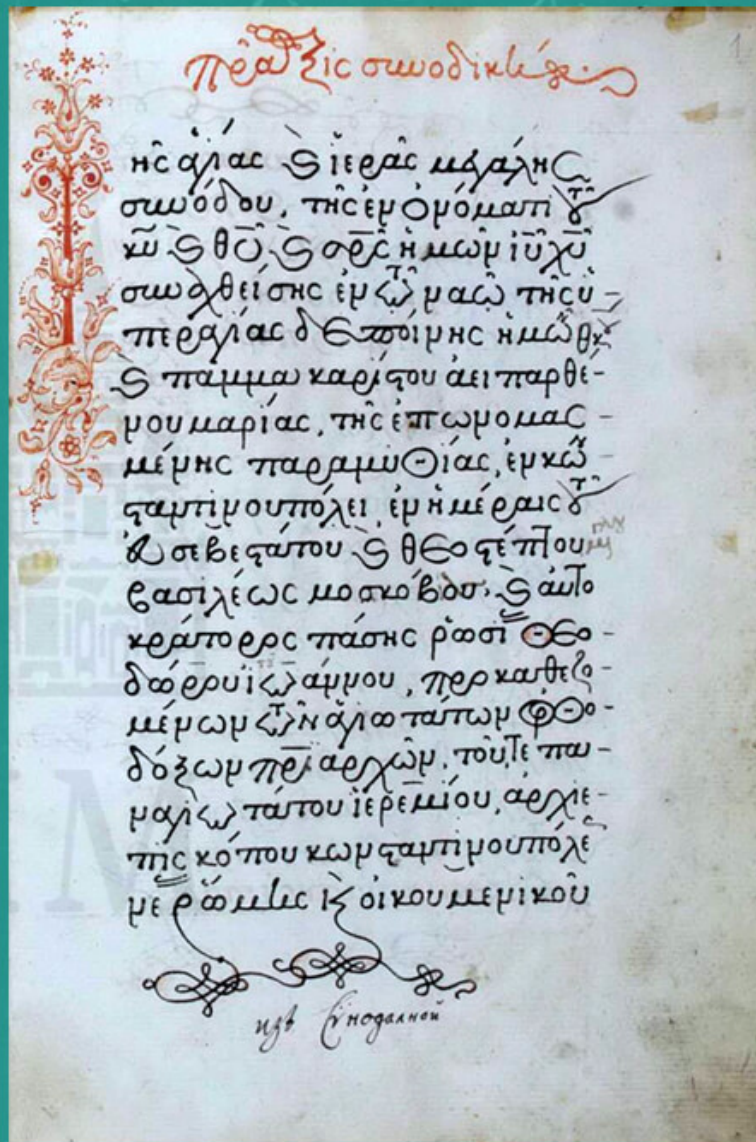 πρᾶξις συνοδική
1
ης ἁγίας καὶ ἱερᾶς μεγάλης
συνόδου, τῆς ἐν ὀνόματι τοῦ
κυ καὶ θυ καὶ σρς ἡμῶν ιυ χυ
συναχθείσης ἐν τῷ ναῷ τῆς ὑ-
περαγίας δεσποίνης ἡμῶν θκου
καὶ παμμακαρίστου ἀειπαρθέ-
νου μαρίας, τῆς ἐπωνομασ-
μένης παραμυθίας, ἐν κων
σταντινουπόλει ἐν ἡμέραις τοῦ
εὐσεβεστάτου καὶ θεοστέπτου
βασιλέως μοσκόβου, καὶ αὐτο
κράτορος πάσης ῥωσί θεο-
δώρου ἰωάννου, προκαθεζο
μένων τῶν ἁγιωτάτων ὀρθο-
δόξων πριαρχῶν, τοῦτε πα-
ναγιωτάτου ἱερεμίου, ἀρχιε-
πισκόπου κωνσταντινουπόλε
νέ ῥώμης καὶ οἰκουμενικοῦ
изъ Сѵнодалной